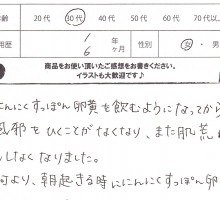 年齢 20代 30代 40代 50代 60代 70代
用歴 1 年 6 ヶ月 性別 女・男
商品をお使い頂いたご感想をお書きください。
イラストも大歓迎です♪
にんにくすっぽん卵黄を飲むようになってから
風邪をひくことがなくなり、また肌荒
しなくなりました。
何より、朝起きる時ににんにくすっぽん卵